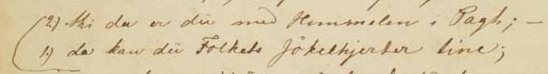 2) thi da er du med Himmelen i Pagh; —
1) da kan du Folkets Jökelhjerter tine;